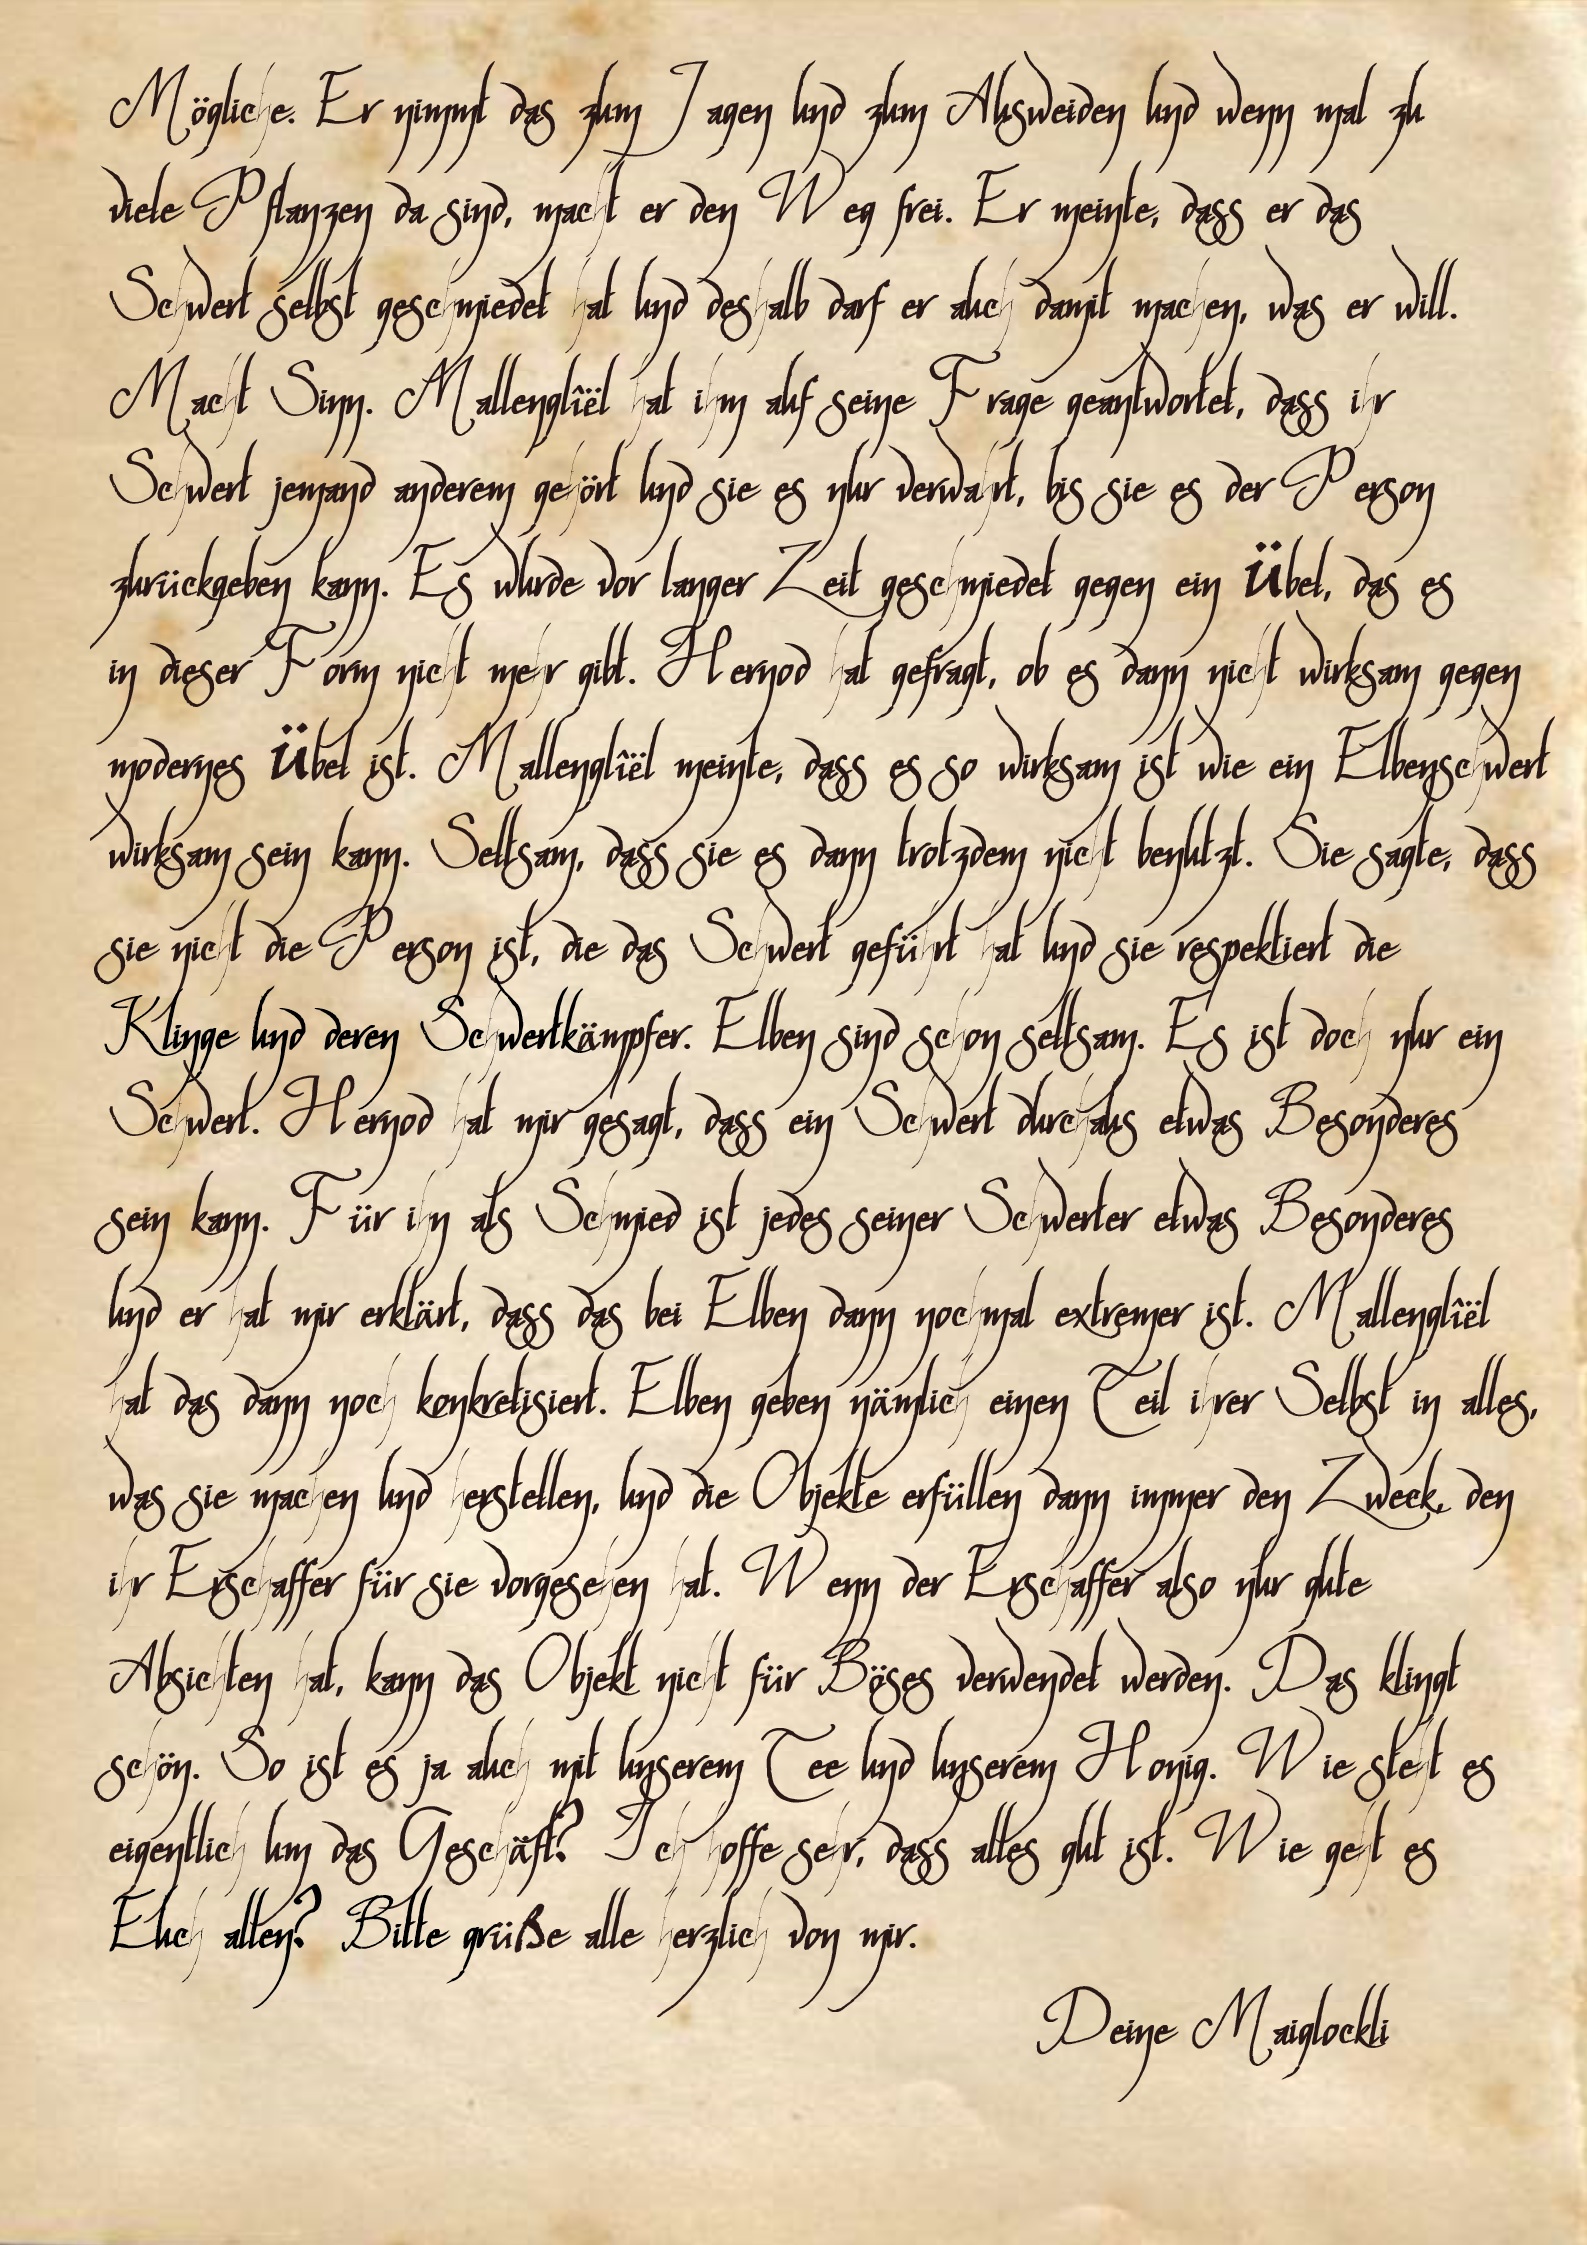 Mögliche. Er nimmt das zum Jagen und zum Ausweiden und wenn mal zu
viele Pflanzen da sind, macht er den Weg frei. Er meinte, dass er das
Schwert selbst geschmiedet hat und deshalb darf er auch damit machen, was er will.
Macht Sinn. Mallenglîël hat ihm auf seine Frage geantwortet, dass ihr
Schwert jemand anderem gehört und sie es nur verwahrt, bis sie es der Person
zurückgeben kann. Es wurde vor langer Zeit geschmiedet gegen ein Übel, das es
in dieser Form nicht mehr gibt. Hernod hat gefragt, ob es dann nicht wirksam gegen
modernes Übel ist. Mallenglîël meinte, dass es so wirksam ist wie ein Elbenschwert
wirksam sein kann. Seltsam, dass sie es dann trotzdem nicht benutzt. Sie sagte, dass
sie nicht die Person ist, die das Schwert geführt hat und sie respektiert die
Klinge und deren Schwertkämpfer. Elben sind schon seltsam. Es ist doch nur ein
Schwert. Hernod hat mir gesagt, dass ein Schwert durchaus etwas Besonderes
sein kann. Für ihn als Schmied ist jedes seiner Schwerter etwas Besonderes
und er hat mir erklärt, dass das bei Elben dann nochmal extremer ist. Mallenglîël
hat das dann noch konkretisiert. Elben geben nämlich einen Teil ihrer Selbst in alles,
was sie machen und herstellen, und die Objekte erfüllen dann immer den Zweck, den
ihr Erschaffer für sie vorgesehen hat. Wenn der Erschaffer also nur gute
Absichten hat, kann das Objekt nicht für Böses verwendet werden. Das klingt
schön. So ist es ja auch mit unserem Tee und unserem Honig. Wie steht es
eigentlich um das Geschäft? Ich hoffe sehr, dass alles gut ist. Wie geht es
Euch allen? Bitte grüße alle herzlich von mir.
Deine Maiglockli